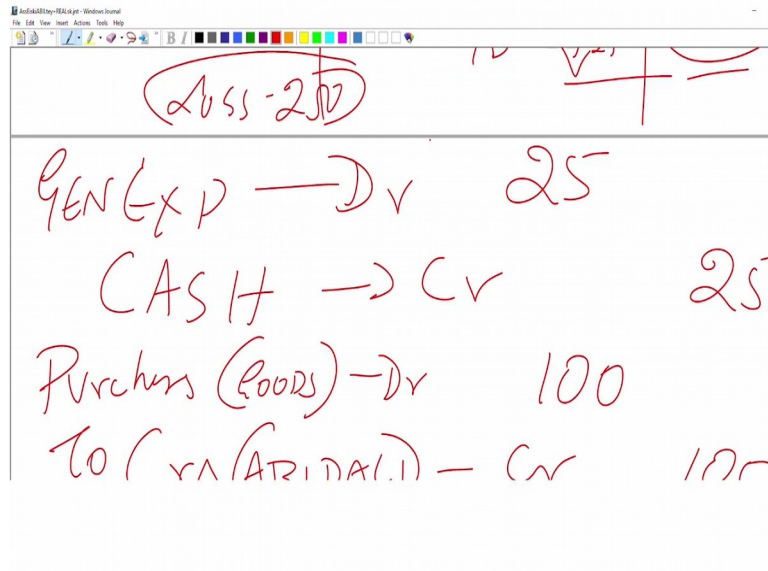 AssEskiABILtey+REALsk.jnt - Windows Journal
File Edit View Insert Actions Tools Help
B I
Loss-250
GENEXP — Dr 25
CASH → Cr 25
Purchess (GOODS) - Dr 100
To Cr - Cr 100